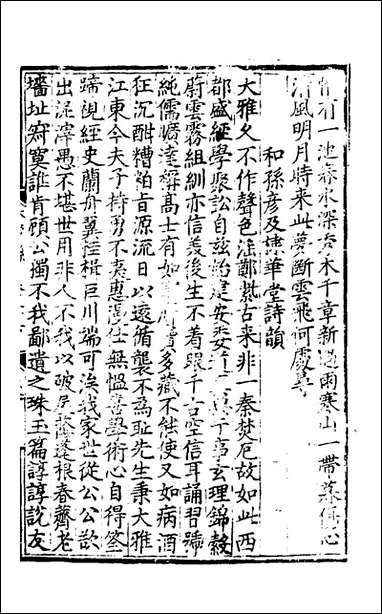 一池春水深木千章新過雨寒山一帶心
清風明月時來此夢斷雲飛何處尋
和孫彦及棣華堂詩韻
大雅久不作聲色淫鄭紫古來非一秦焚故如此西
都盛經學聚訟自兹始建安事玄理錦縠
蔚雲霧組訓亦信美後生不着眼千古空信耳誦習稀
純儒曠達稱高士有如多藏不能使又如病酒
狂沉酣糟粕旨源流日以遠循襲不爲耻先生秉大雅
江東今夫子持勇不夷惠仕無慍喜藝術心自得筌
蹄視經史蘭舟翼陸楫巨川端可涘我家世從公公欲
出泥滓愚不堪世用非人不我以破屋蔭蓬根春薺老
墻址寂寞誰肯顧公獨不我鄙遺之珠玉篇諄諄說友